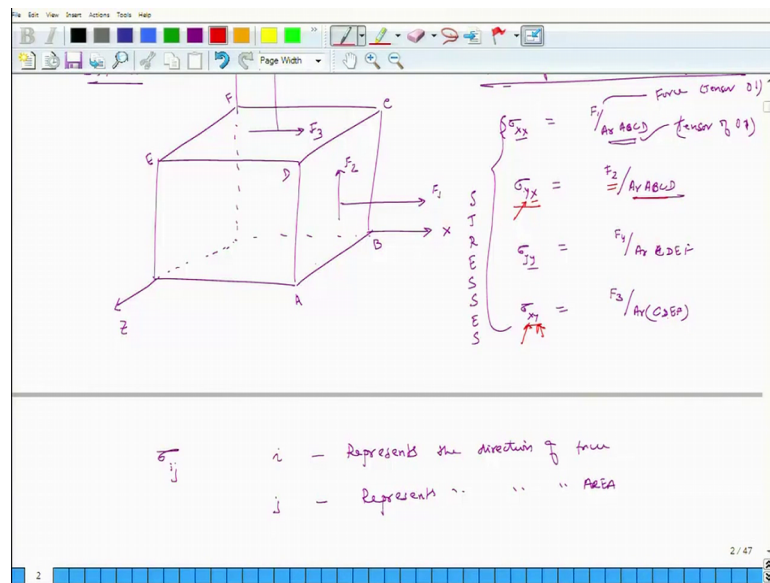 File Edit View Insert Actions Tools Help
B I
Page Width
Force (Tensor 01)
F C
E D
F3
F2
F1
X
B
A
Z
STRESSES
σxx = F1/Ar ABCD (Tensor of 01)
σyx = F2/Ar ABCD
σyy = F4/Ar CDEF
σxy = F3/Ar(CDEF)
σij i – Represents the direction of force
j – Represents " " " AREA
2 / 47
2